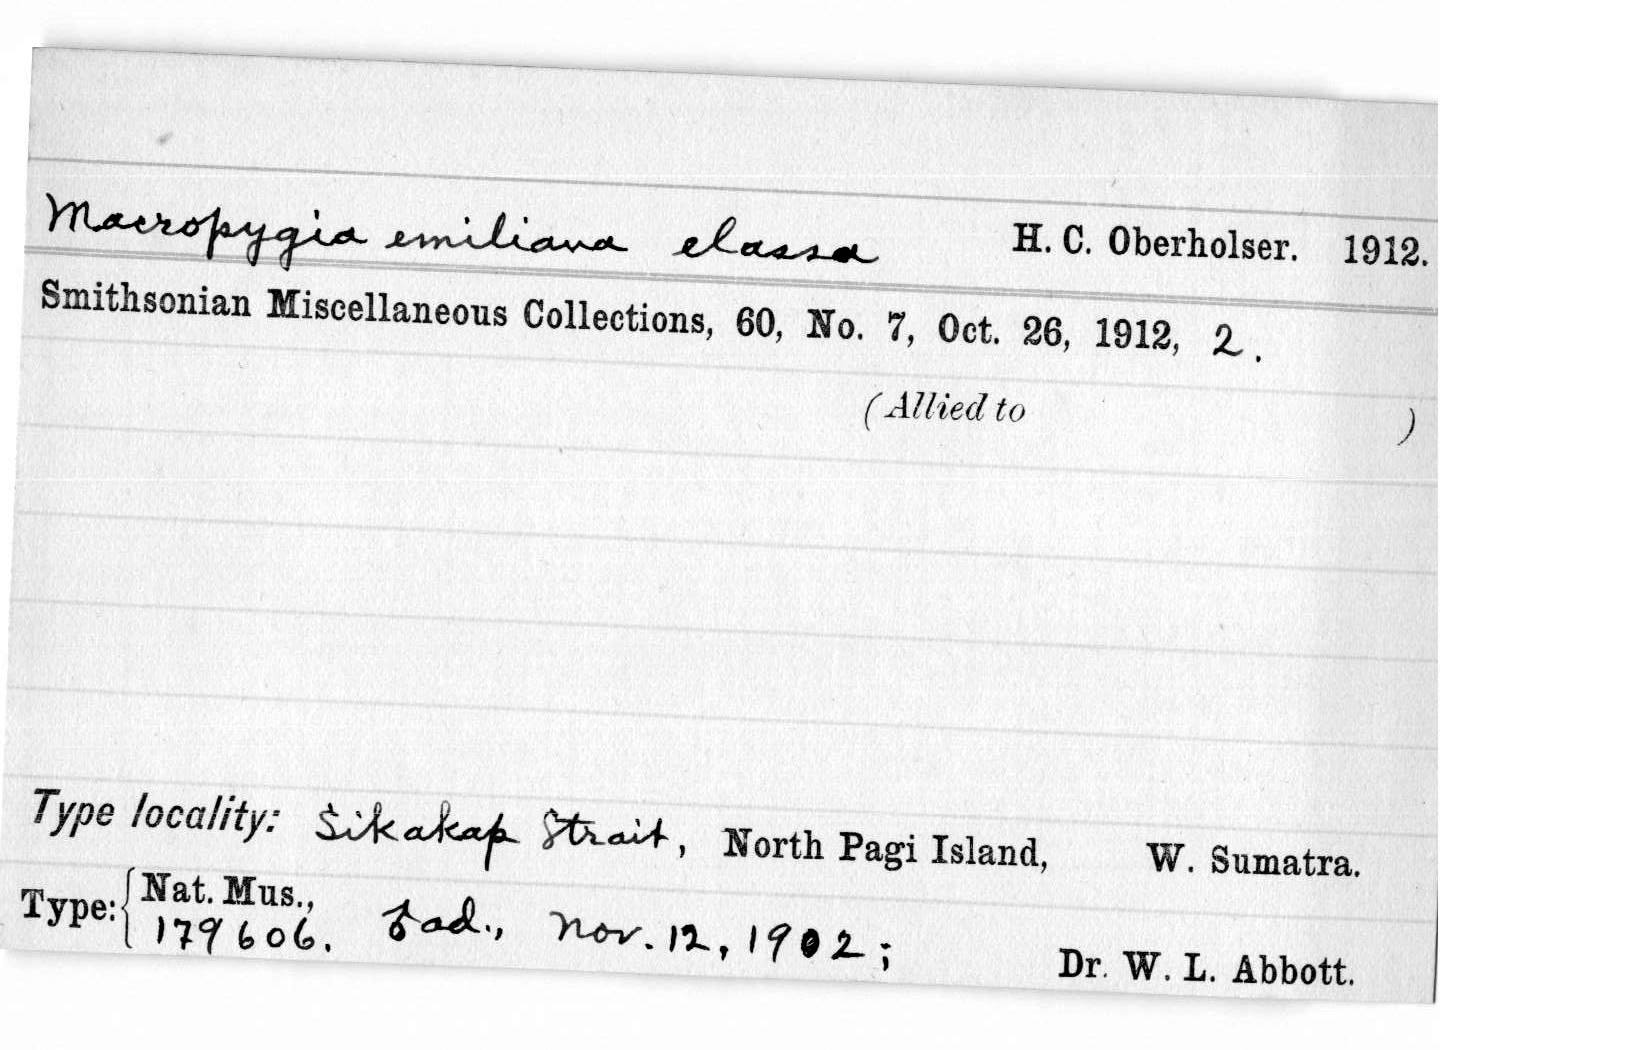 Macropygia emiliana elassa H. C. Oberholser. 1912.
Smithsonian Miscellaneous Collections, 60, No. 7, Oct. 26, 1912, 2.
(Allied to )
Type locality: Sikakap Strait, North Pagi Island, W. Sumatra.
Type: { Nat. Mus.,
179606. ad., Nov. 12, 1902; Dr. W. L. Abbott.